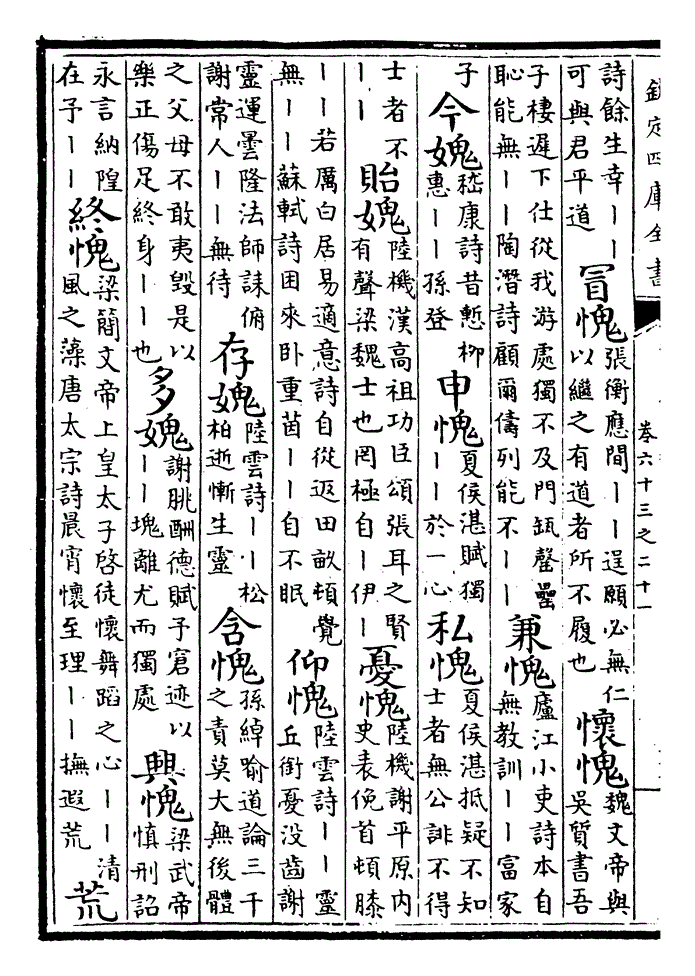 欽定四庫全書
卷六十三之二十一
詩餘生幸丨丨
可與君平道
冒愧
張衡應間丨丨逞願必無仁
以繼之有道者所不履也
懷愧
魏文帝與
吳質書吾
子棲遲下仕從我游處獨不及門缾罄罍
恥能無丨丨陶潛詩顧爾儔列能不丨丨
兼愧
廬江小吏詩本自
無教訓丨丨富家
子
今媿
嵇康詩昔慙柳
惠丨丨孫登
申愧
夏侯湛賦獨
丨丨於一心
私愧
夏侯湛抵疑不知
士者無公誹不得
士者不
丨丨
貽媿
陸機漢高祖功臣頌張耳之賢
有聲梁魏士也罔極自丨伊丨
憂愧
陸機謝平原内
史表俛首頓膝
丨丨若厲白居易適意詩自從返田畝頓覺
無丨丨蘇軾詩困來卧重茵丨丨自不眠
仰愧
陸雲詩丨丨靈
丘銜憂没齒謝
靈運曇隆法師誄俯
謝常人丨丨無待
存媿
陸雲詩丨丨松
柏逝慚生靈
含愧
孫綽喻道論三千
之責莫大無後體
之父母不敢夷毁是以
樂正傷足終身丨丨也
多媿
謝朓酬德賦予窘迹以
丨丨塊離尤而獨處
興愧
梁武帝
慎刑詔
永言納隍
在予丨丨
終愧
梁簡文帝上皇太子啓徒懷舞蹈之心丨丨清
風之藻唐太宗詩晨宵懷至理丨丨撫遐荒
荒